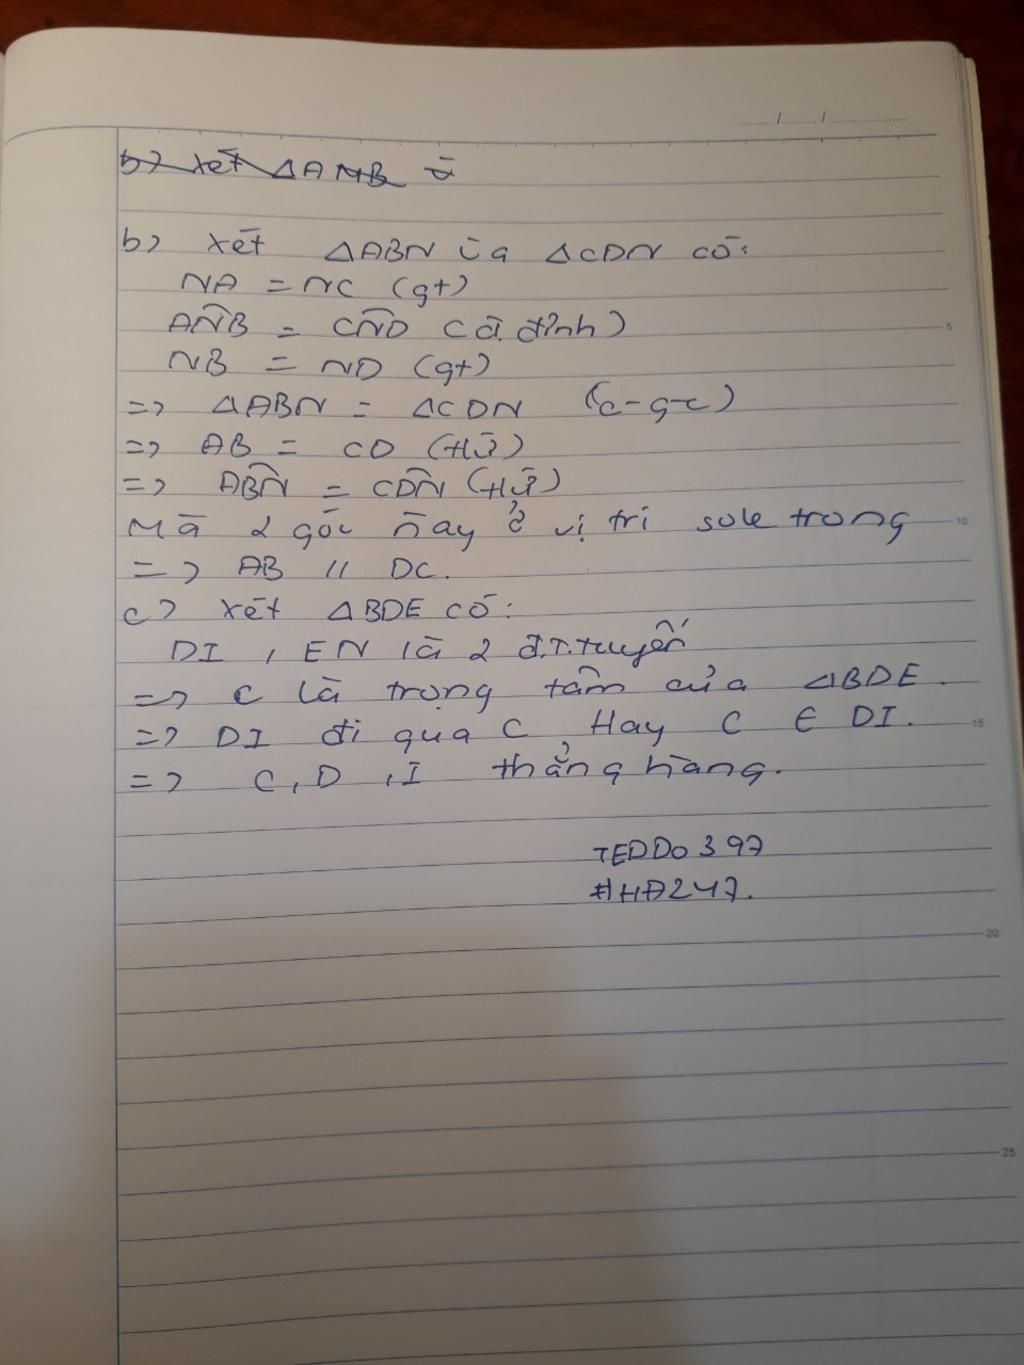 b) Xét ΔANB và
b) Xét ΔABN và ΔCDN có:
NA = NC (gt)
AN̂B = CN̂D (đ. đỉnh)
NB = ND (gt)
=> ΔABN = ΔCDN (c-g-c)
=> AB = CD (HỮ)
=> AB̂N = CD̂N (HỮ)
Mà 2 góc này ở vị trí sole trong
=> AB // DC.
c) Xét ΔBDE có:
DI, EN là 2 đ.T.tuyến
=> C là trọng tâm của ΔBDE.
=> DI đi qua C, Hay C ∈ DI.
=> C, D, I thẳng hàng.
TEDDo 397
#HĐ247.
5
10
15
20
25